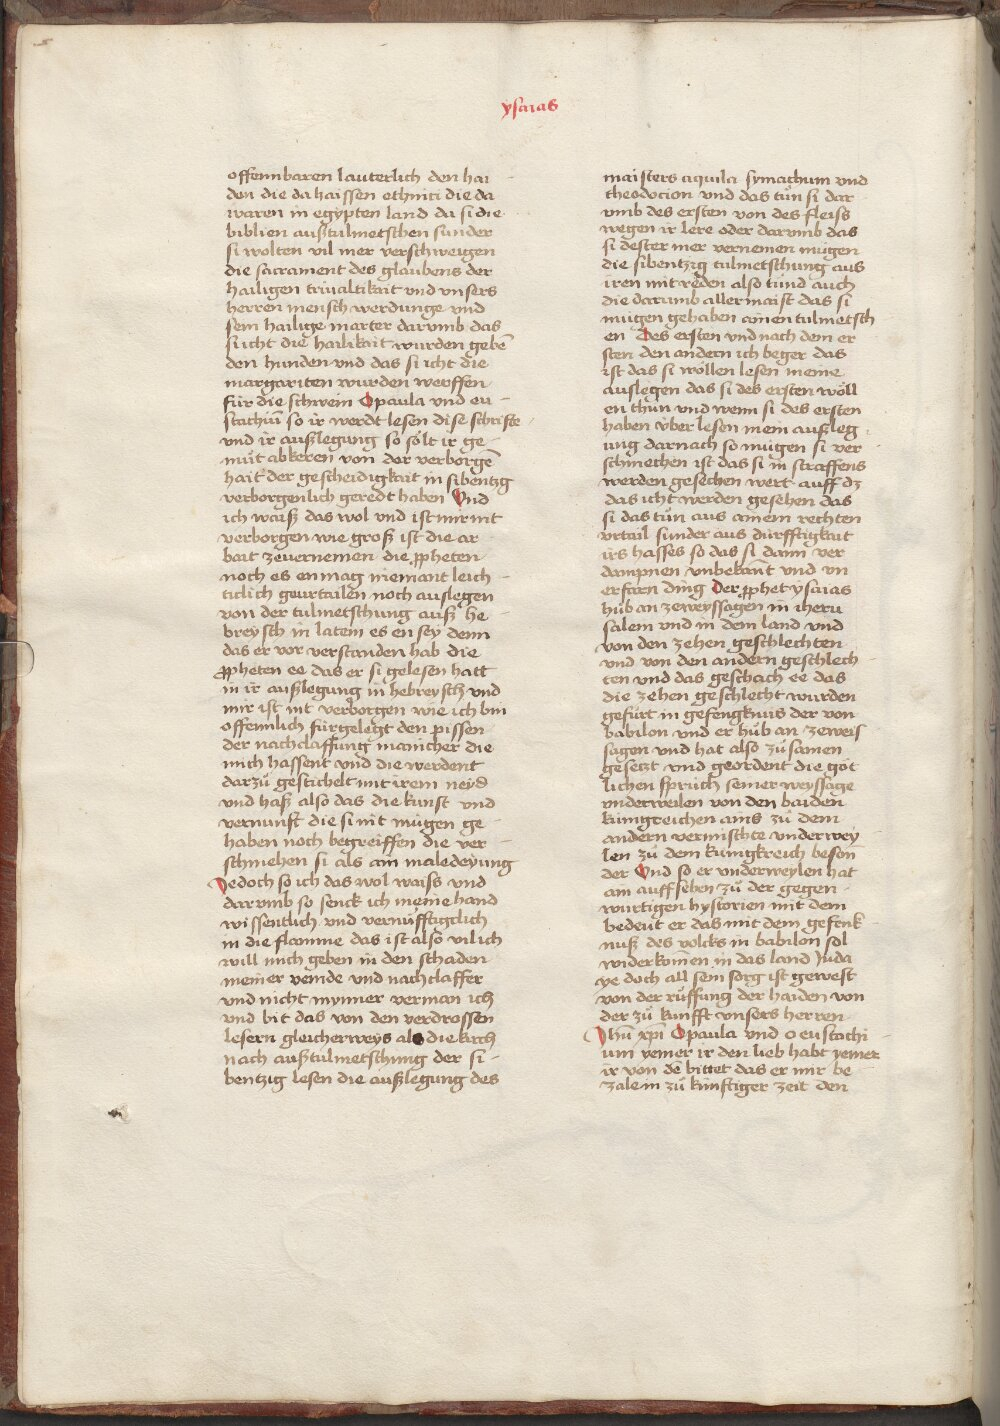 ysaias
offennbaren lauterlich den hai
den die da haissen ethnici die da
waren in egypten land da si die
biblien außtulmetschen sunder
si wolten vil mer verschweigen
die sacrament des glaubens der
hailigen trivaltikait vnd vnsers
herren mensch werdunge vnd
sein hailige marter darvmb das
si icht die hailikait wurden gebē
den hunden vnd das si icht die
margariten wurden werffen
für die schwein O paula vnd eu
stachiū so ir werdt lesen dise schrifte
vnd ir außlegung so sölt ir ge
müt abkeren von der verborgē
hait der gescheidigkait in sibentzig
verborgenlich geredt haben Vnd
ich waiß das wol vnd ist mir nit
verborgen wie groß ist die ar
bait zevernemen die ꝓpheten
noch es en mag niemant leich
ticlich gevrtailen noch auslegen
von der tulmetschung auß he
breysch in latein es en sey denn
das er vor verstanden hab die
ꝓpheten ee das er si gelesen hatt
in ir außlegung in hebreysch vnd
mir ist nit verborgen wie ich bin
offennlich fürgelegt den pissen
der nachclaffung manicher die
mich hassent vnd die werdent
darzů gestichelt mit irem neyd
vnd haß also das die kunst vnd
vernunft die si nit mügen ge
haben noch begreiffen die ver
schmehen si als ain maledeyung
Jedoch so ich das wol waiss vnd
darvmb so senck ich meine hand
wissentlich vnd vernüfftigclich
in die flamme das ist also vil ich
will mich geben in den schaden
meiner veinde vnd nachclaffer
vnd nicht mynner verman ich
vnd bit das von den verdrossen
lesern gleicherweys als die kirch
nach außtulmetschung der si
bentzig lesen die außlegung des
maisters aquila symachum vnd
theodocion vnd das tün si dar
vmb des ersten von des fleiss
wegen ir lere oder darvmb das
si dester mer vernemen mügen
die sibentzig tulmetschung aus
iren mit reden also tünd auch
die darumb aller maist das si
mügen gehaben ainen tulmetsch
en Des ersten vnd nach dem er
sten den andern ich beger das
ist das si wöllen lesen meine
auslegen das si des ersten wöll
en thun vnd wenn si des ersten
haben vber lesen mein außleg
ung darnach so mügen si ver
schmechen ist das si in straffens
werden gesechen wert auff dz
das icht werden gesehen das
si das tün aus ainem rechten
vrtail sunder aus durfftigkait
irs hasses so das si dann ver
dampnen vnbekant vnd vn
erfarn ding Der ꝓphet ysaias
hůb an zeweyssagen in iheru
salem vnd in dem land vnd
von den zehen geschlechten
vnd von den andern geschlech
ten vnd das geschach ee das
die zehen geschlecht wurden
gefürt in gefengknüs der von
babilon vnd er hůb an zeweis
sagen vnd hat also zůsamen
gesetzt vnd geordent die göt
lichen sprüch seiner weyssage
vnderweilen von den baiden
künigreichen ains zů dem
andern vermischte vnderwey
len zů dem kunigkreich beson
der Vnd so er vnderweylen hat
ain auff sehen zů der gegen
würtigen hystorien mit dem
bedeüt er das mit dem gefenk
nuß des volcks in babilon sol
widerkomen in das land Juda
ye doch all sein sorg ist gewest
von der rüffung der haiden von
der zů kunfft vnsers herren
Jhū xp̄i O paula vnd o eustochi
um yemer ir den lieb habt yemer
ir von dē bittet das er mir be
zale in zů künftiger zeit den